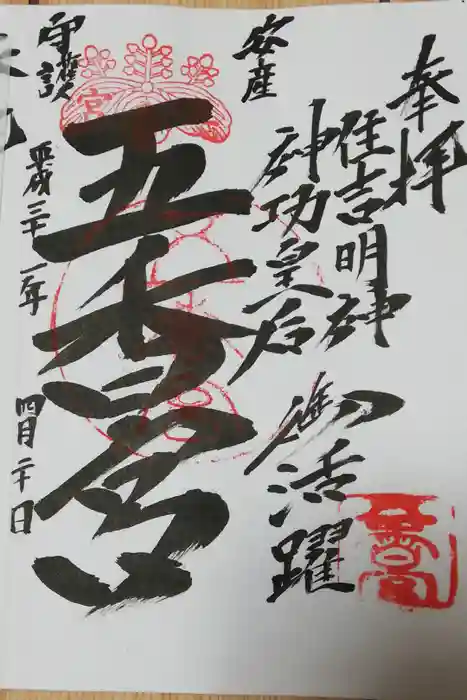 奉拝
住吉明神
神功皇后
御活躍
安産
五香宮
守護
平成三十一年
四月二十日